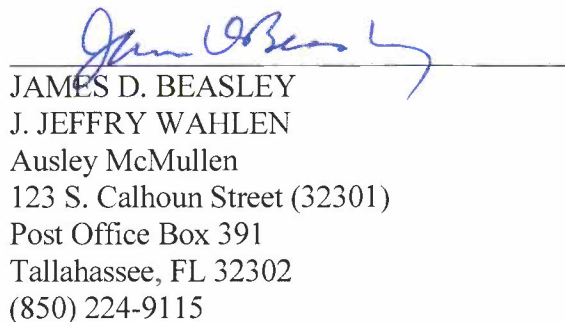 James D Beasley
JAMES D. BEASLEY
J. JEFFRY WAHLEN
Ausley McMullen
123 S. Calhoun Street (32301)
Post Office Box 391
Tallahassee, FL 32302
(850) 224-9115